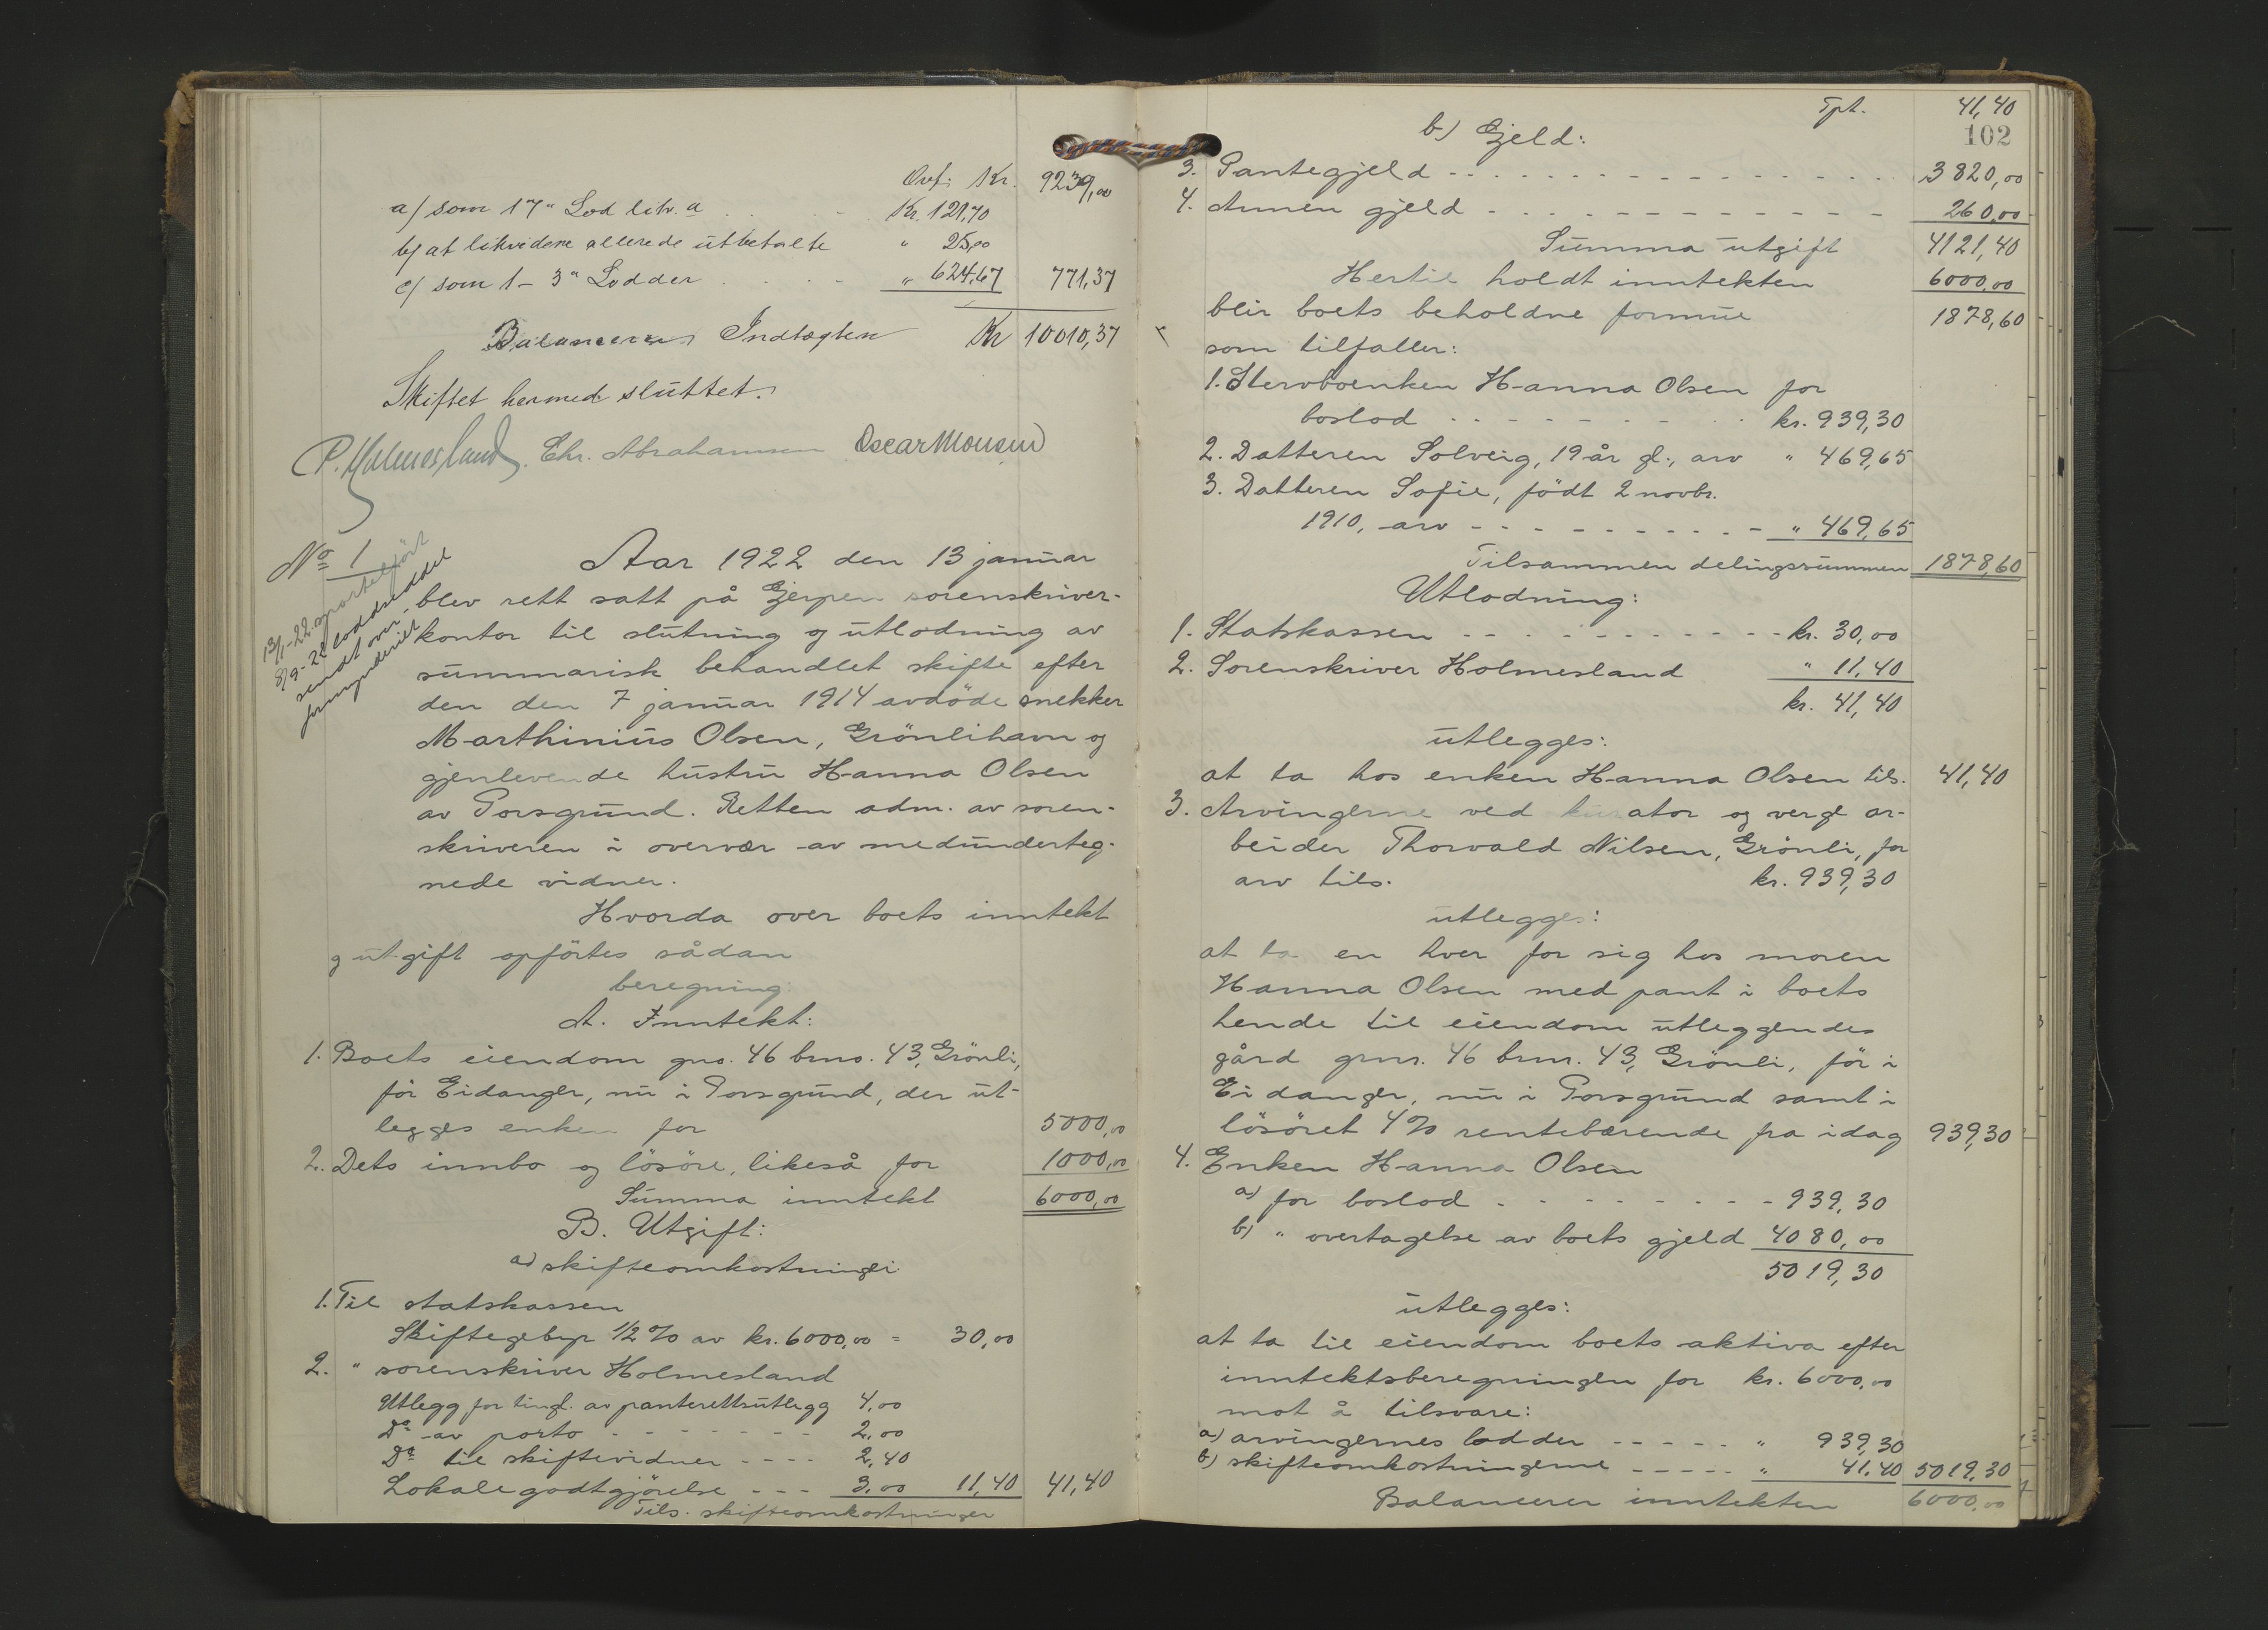 Ovf. Kr. 9239,00
a/ som 17" Lod litr. a Kr. 121,70
b/ at likvidere allerede utbetalte " 25,00
c/ som 1-3" Lodder " 624,67 771,37
Balancerer Indtægten Kr 10010,37
Skiftet hermed sluttet.
P. Holmesland. Chr. Abrahamsen Oscar Monsen
No 1
13/1-22 sportelført
8/9-22 loddseddel
sendt over-
formynderiet
Aar 1922 den 13 januar
blev rett satt på Gjerpen sorenskriver-
kontor til slutning og utlodning av
summarisk behandlet skifte efter
den den 7 januar 1914 avdöde snekker
Marthinius Olsen, Grönlihavn og
gjenlevende hustru Hanna Olsen
av Porsgrund. Retten adm. av soren-
skriveren i overvær av medunderteg-
nede vidner.
Hvorda over boets inntekt
og utgift opförtes sådan
beregning:
A. Inntekt:
1. Boets eiendom gno. 46 brno. 43, Grönli,
för Eidanger, nu i Porsgrund, der ut-
legges enken for 5000,00
2. Dets innbo og lösöre, likeså for 1000,00
Summa inntekt 6000,00
B. Utgift:
a) skifteomkostninger
1. Til statskassen
Skiftegebyr 1/2 % av kr. 6000,00 = 30,00
2. " sorenskriver Holmesland
Utlegg for tingl. av panterettsutlegg 4,00
Do av porto - - - - - - - 2,00
Do til skiftevidner - - - - 2,40
Lokalegodtgjörelse - - - 3,00 11,40 41,40
Tils. skifteomkostninger
Tpt. 41,40
102
b) Gjeld:
3. Pantegjeld - - - - - - - - - - 3820,00
4. Annen gjeld - - - - - - - - - - 260,00
Summa utgift 4121,40
Hertil holdt inntekten 6000,00
blir boets beholdne formue 1878,60
som tilfaller:
1. Stervboenken Hanna Olsen for
boslod - - - - - - - - kr. 939,30
2. Datteren Solveig, 19 år gl., arv " 469,65
3. Datteren Sofie, födt 2 novbr.
1910, arv - - - - - - - - - " 469,65
Tilsammen delingssummen 1878,60
Utlodning:
1. Statskassen - - - - - - - - - - kr. 30,00
2. Sorenskriver Holmesland " 11,40
kr. 41,40
utlegges:
at ta hos enken Hanna Olsen tils. 41,40
3. Arvingerne ved kurator og verge ar-
beider Thorvald Nilsen, Grönli, for
arv tils. kr. 939,30
utlegges:
at ta en hver for sig hos moren
Hanna Olsen med pant i boets
hende til eiendom utleggendes
gård gnr. 46 bnr. 43, Grönli, för i
Eidanger, nu i Porsgrund samt i
lösöret 4% rentebærende fra idag 939,30
4. Enken Hanna Olsen
a) for boslod - - - - - - - - 939,30
b) " overtagelse av boets gjeld 4080,00
5019,30
utlegges:
at ta til eiendom boets aktiva efter
inntektsberegningen for kr. 6000,00
mot å tilsvare:
a) arvingernes lodder - - - - - " 939,30
b) skifteomkostningerne - - - - - " 41,40 5019,30
Balancerer inntekten 6000,00